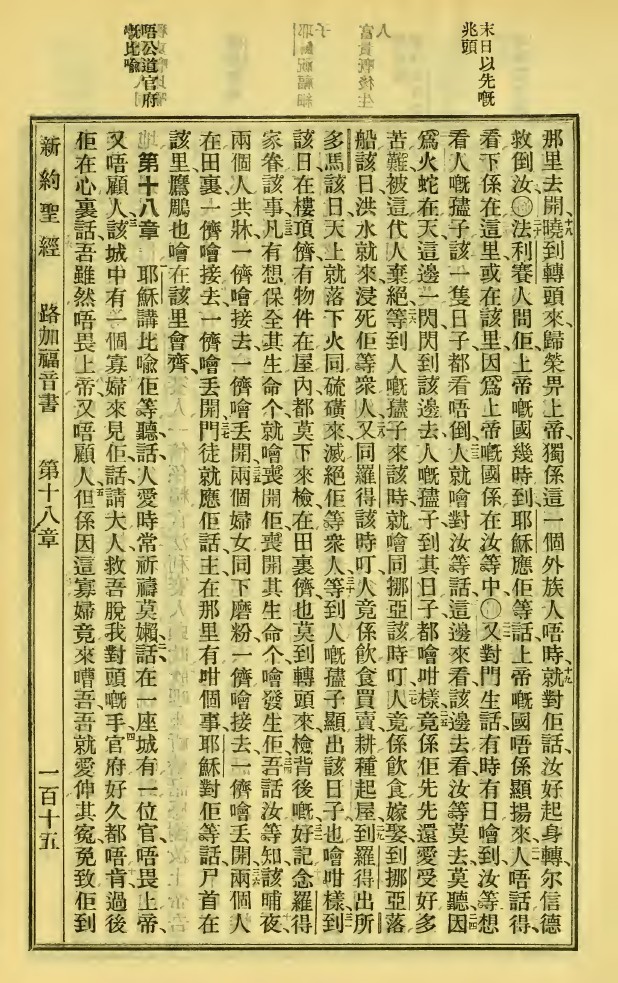 末日以先嘅
兆頭
唔公道官府
嘅比喻
那里去開曉到轉頭來歸榮畀上帝獨係這一個外族人唔時就對佢話汝好起身轉尔信德
救倒汝法利賽人問佢上帝嘅國幾時到耶穌應佢等話上帝嘅國唔係顯揚來人唔話得
看下係在這里或在該里因爲上帝嘅國係在汝等中又對門生話有時有日噲到汝等想
看人嘅孻子該一隻日子都看唔倒人就噲對汝等話這邊來看該邊去看汝等莫去莫聽因
爲火蛇在天這邊一閃閃到該邊去人嘅孻子到其日子都噲咁樣竟係佢先先還愛受好多
苦難被這代人棄絕等到人嘅孻子來該時就噲同挪亞該時叮人竟係飲食嫁娶到挪亞落
船該日洪水就來浸死佢等衆人又同羅得該時叮人竟係飲食買賣耕種起屋到羅得出所
多馬該日天上就落下火同硫磺來滅絕佢等衆人等到人嘅孻子顯出該日子也噲咁樣到
該日在樓頂儕有物件在屋內都莫下來檢在田裏儕也莫到轉頭來檢背後嘅好記念羅得
家眷該事凡有想保全其生命个就噲喪開佢喪開其生命个噲發生佢吾話汝等知該晡夜
兩個人共牀一儕噲接去一儕噲丟開兩個婦女同下磨粉一儕噲接去一儕噲丟開兩個人
在田裏一儕噲接去一儕噲丟開門徒就應佢話主在那里有咁個事耶穌對佢等話尸首在
該里鷹鵰也噲在該里會齊
第十八章 耶穌講比喻佢等聽話人愛時常祈禱莫嬾話在一座城有一位官唔畏上帝
又唔顧人該城中有一個寡婦來見佢話請大人救吾脫我對頭嘅手官府好久都唔肯過後
佢在心裏話吾雖然唔畏上帝又唔顧人但係因這寡婦竟來嘈吾吾就愛伸其寃免致佢到
新約聖經 路加福音書 第十八章 一百十五